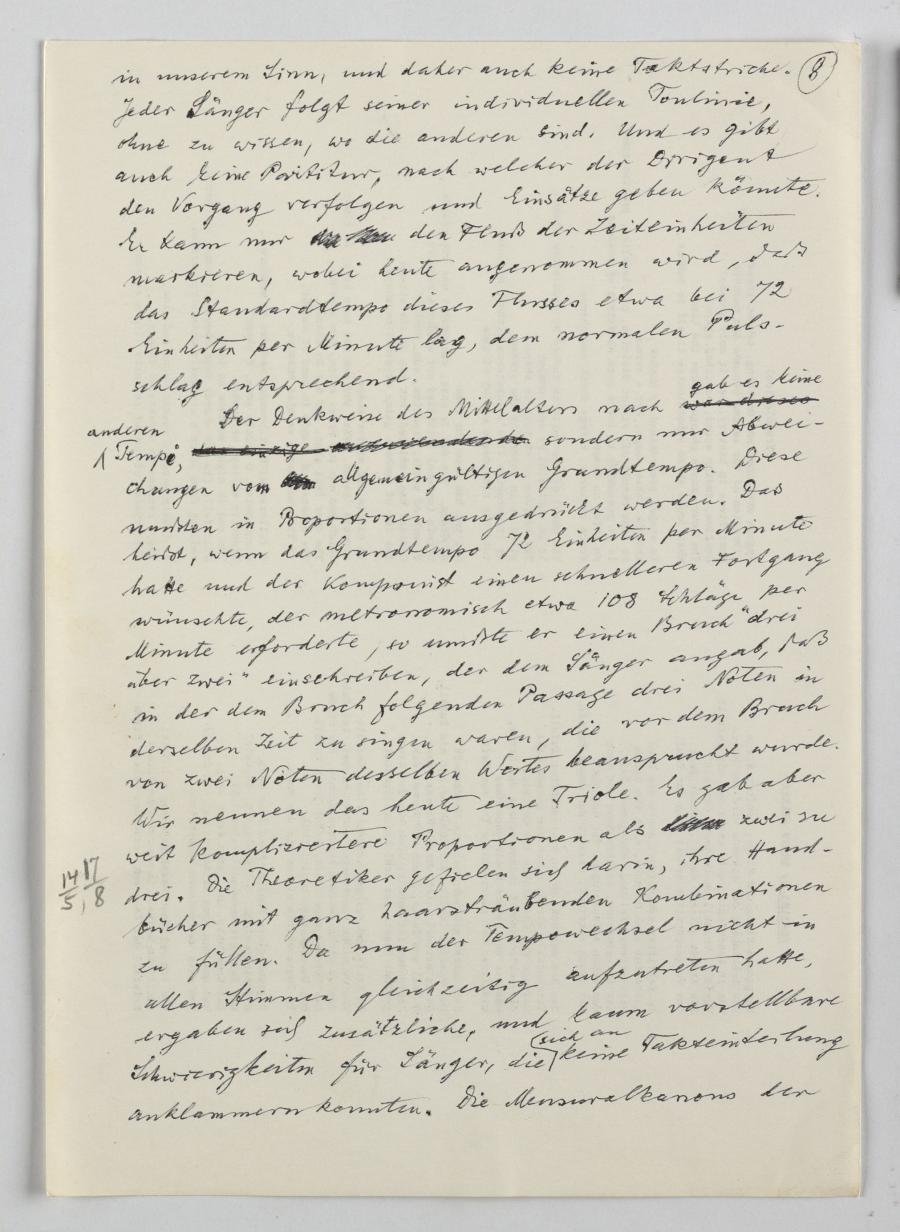 in unserem Sinn, und daher auch keine Taktstriche. 8
Jeder Sänger folgt seiner individuellen Tonlinie,
ohne zu wissen, wo die anderen sind. Und es gibt
auch keine Partitur, nach welcher der Dirigent
den Vorgang verfolgen und Einsätze geben könnte.
Er kann nur den Fluß der Zeiteinheiten
markieren, wobei heute angenommen wird, daß
das Standardtempo dieses Flusses etwa bei 72
Einheiten per Minute lag, dem normalen Puls-
schlag entsprechend.
gab es keine
Der Denkweise des Mittelalters nach war dieses
anderen
Tempi, das einzige sondern nur Abwei-
chungen vom allgemeingültigen Grundtempo. Diese
mußten in Proportionen ausgedrückt werden. Das
heißt, wenn das Grundtempo 72 Einheiten per Minute
hatte und der Komponist einen schnelleren Fortgang
wünschte, der metronomisch etwa 108 Schläge per
Minute erforderte, so mußte er einen Bruch "drei
über zwei" einschreiben, der dem Sänger angab, daß
in der dem Bruch folgenden Passage drei Noten in
derselben Zeit zu singen waren, die vor dem Bruch
von zwei Noten desselben Wertes beansprucht wurde.
Wir nennen das heute eine Triole. Es gab aber
weit kompliziertere Proportionen als zwei zu
14/5, 17/8
drei. Die Theoretiker gefielen sich darin, ihre Hand-
bücher mit ganz haarsträubenden Kombinationen
zu füllen. Da nun der Tempowechsel nicht in
allen Stimmen gleichzeitig aufzutreten hatte,
ergaben sich zusätzliche, und kaum vorstellbare
sich an
Schwierigkeiten für Sänger, die keine Takteinteilung
anklammern konnten. Die Mensuralkanons der